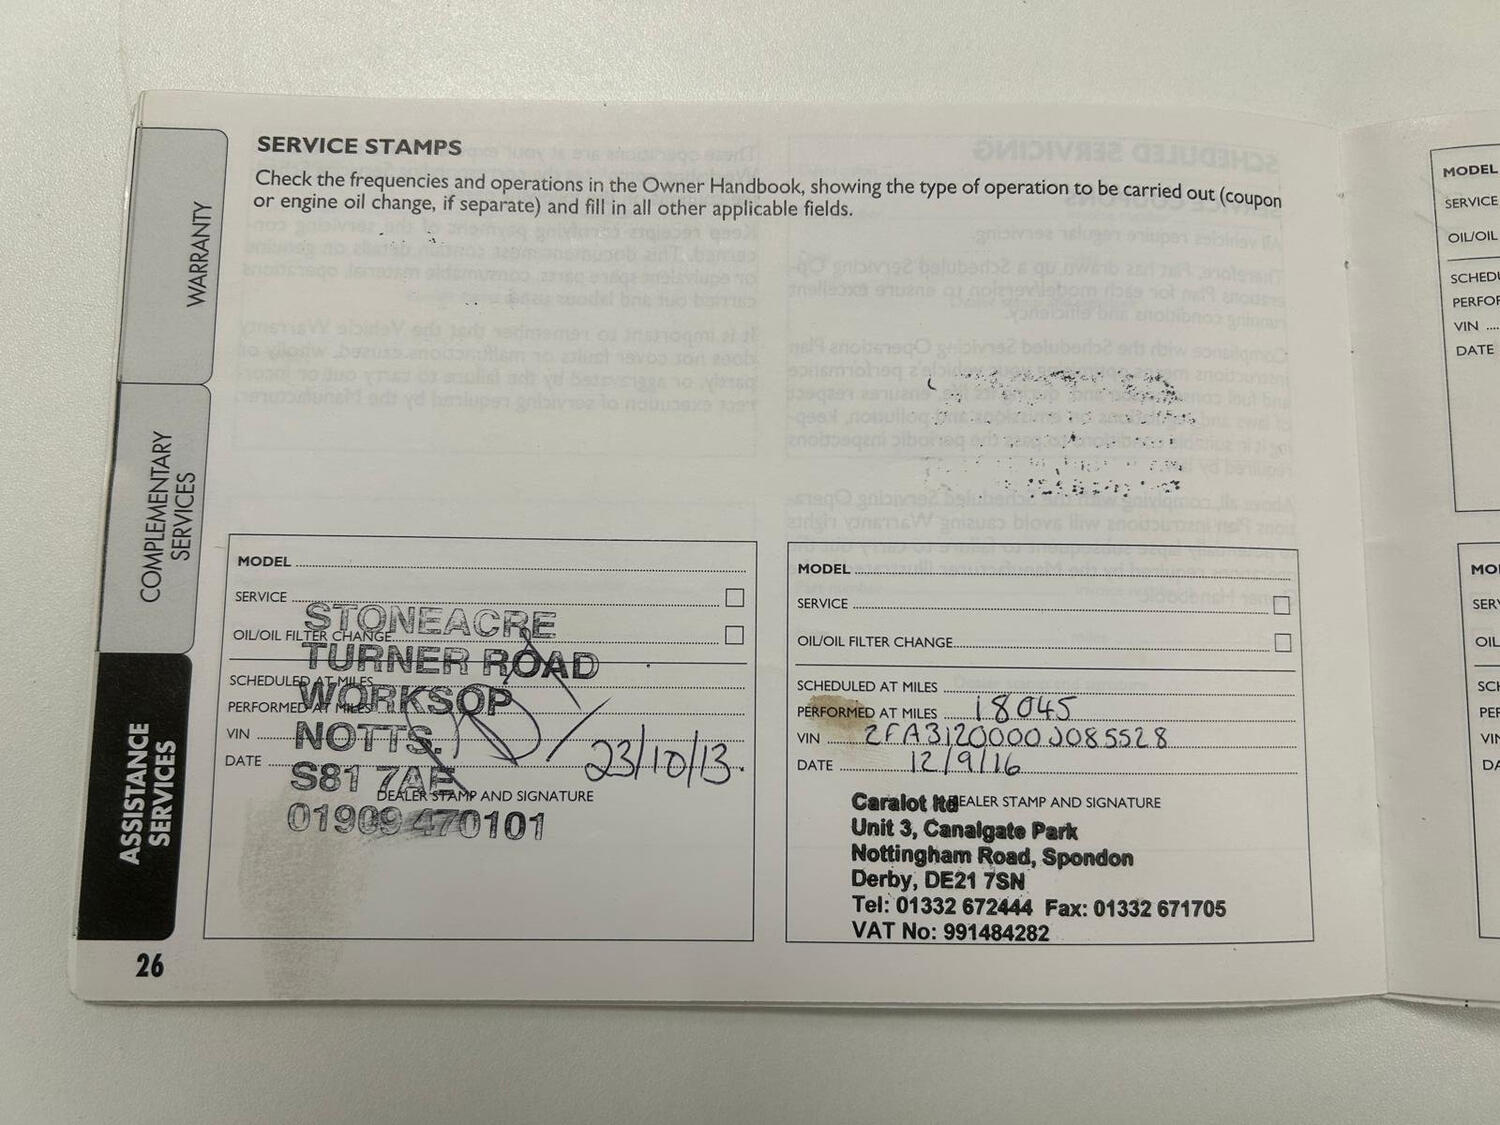 WARRANTY
COMPLEMENTARY
SERVICES
ASSISTANCE
SERVICES
SERVICE STAMPS
Check the frequencies and operations in the Owner Handbook, showing the type of operation to be carried out (coupon
or engine oil change, if separate) and fill in all other applicable fields.
MODEL
SERVICE
OIL/OIL FILTER CHANGE
SCHEDULED AT MILES
PERFORMED AT MILES
VIN
DATE
23/10/13
DEALER STAMP AND SIGNATURE
STONEACRE
TURNER ROAD
WORKSOP
NOTTS.
S81 7AE
01909 470101
MODEL
SERVICE
OIL/OIL FILTER CHANGE
SCHEDULED AT MILES
PERFORMED AT MILES 18045
VIN ZFA31200000085528
DATE 12/9/16
DEALER STAMP AND SIGNATURE
Caralot ltd
Unit 3, Canalgate Park
Nottingham Road, Spondon
Derby, DE21 7SN
Tel: 01332 672444 Fax: 01332 671705
VAT No: 991484282
26
MODEL
SERVICE
OIL/OIL
VIN
DATE